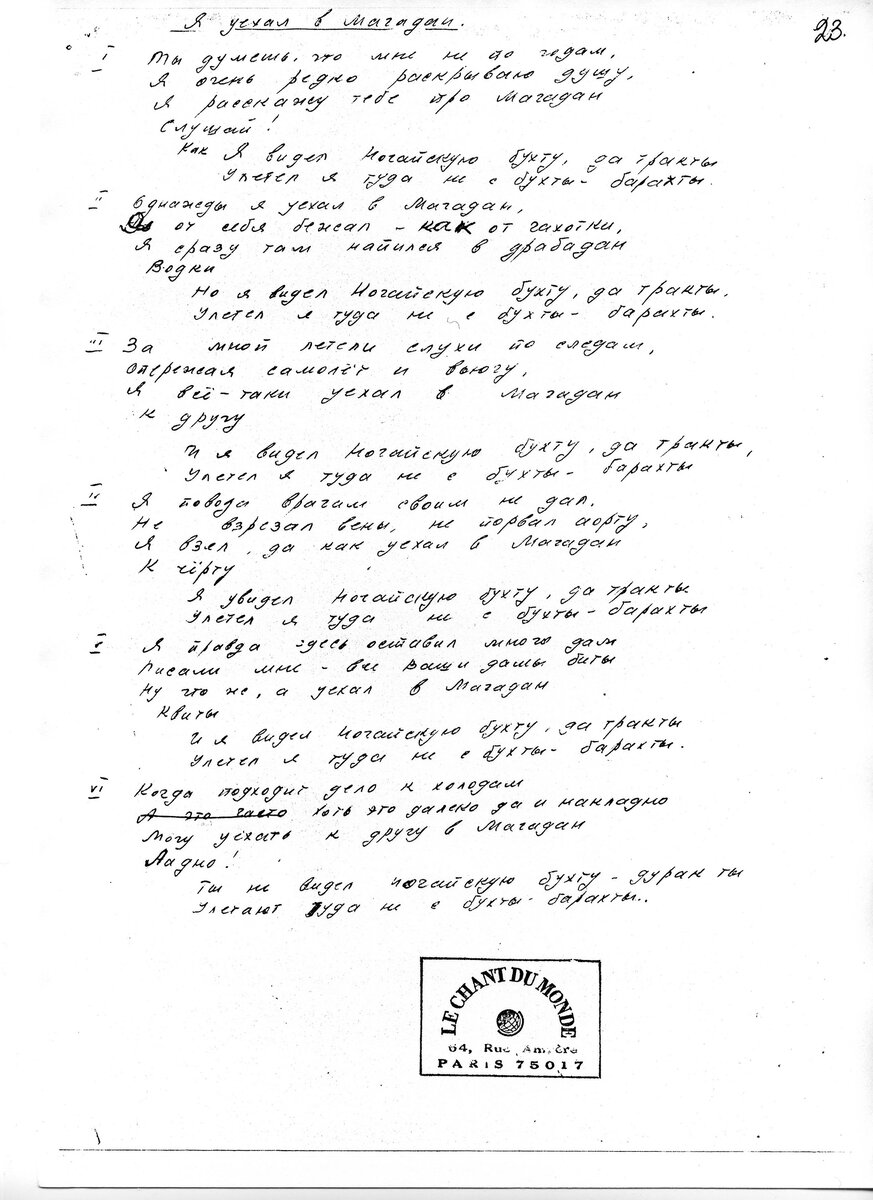 Я уехал в Магадан.
23.
I Ты думешь, что мне не по годам,
Я очень редко раскрываю душу,
Я расскажу тебе про Магадан
Слушай!
Как Я видел Ногайскую бухту, да тракты
Улетел я туда не с бухты-барахты.
II Однажды я уехал в Магадан,
от себя бежал - как от чахотки,
Я сразу там напился в драбадан
Водки
Но я видел Ногайскую бухту, да тракты.
Улетел я туда не с бухты-барахты.
III За мной летели слухи по следам,
Опережая самолёт и вьюгу,
Я всё-таки уехал в Магадан
К другу
И я видел Ногайскую бухту, да тракты,
Улетел я туда не с бухты-барахты
IV Я повода врагам своим не дал.
Не взрезал вены, не порвал аорту,
Я взял, да как уехал в Магадан
К чёрту
Я увидел Ногайскую бухту, да тракты
Улетел я туда не с бухты-барахты
V Я правда здесь оставил много дам
Писали мне - все Ваши дамы биты
Ну что же, а уехал в Магадан
Квиты
И я видел Ногайскую бухту, да тракты
Улетел я туда не с бухты-барахты.
VI Когда подходит дело к холодам
А это часто хоть это далеко да и накладно
Могу уехать к другу в Магадан
Ладно!
Ты не видел Ногайскую бухту - дурак ты
Улетают туда не с бухты-барахты..
LE CHANT DU MONDE
64, Rue Ampère
PARIS 75017